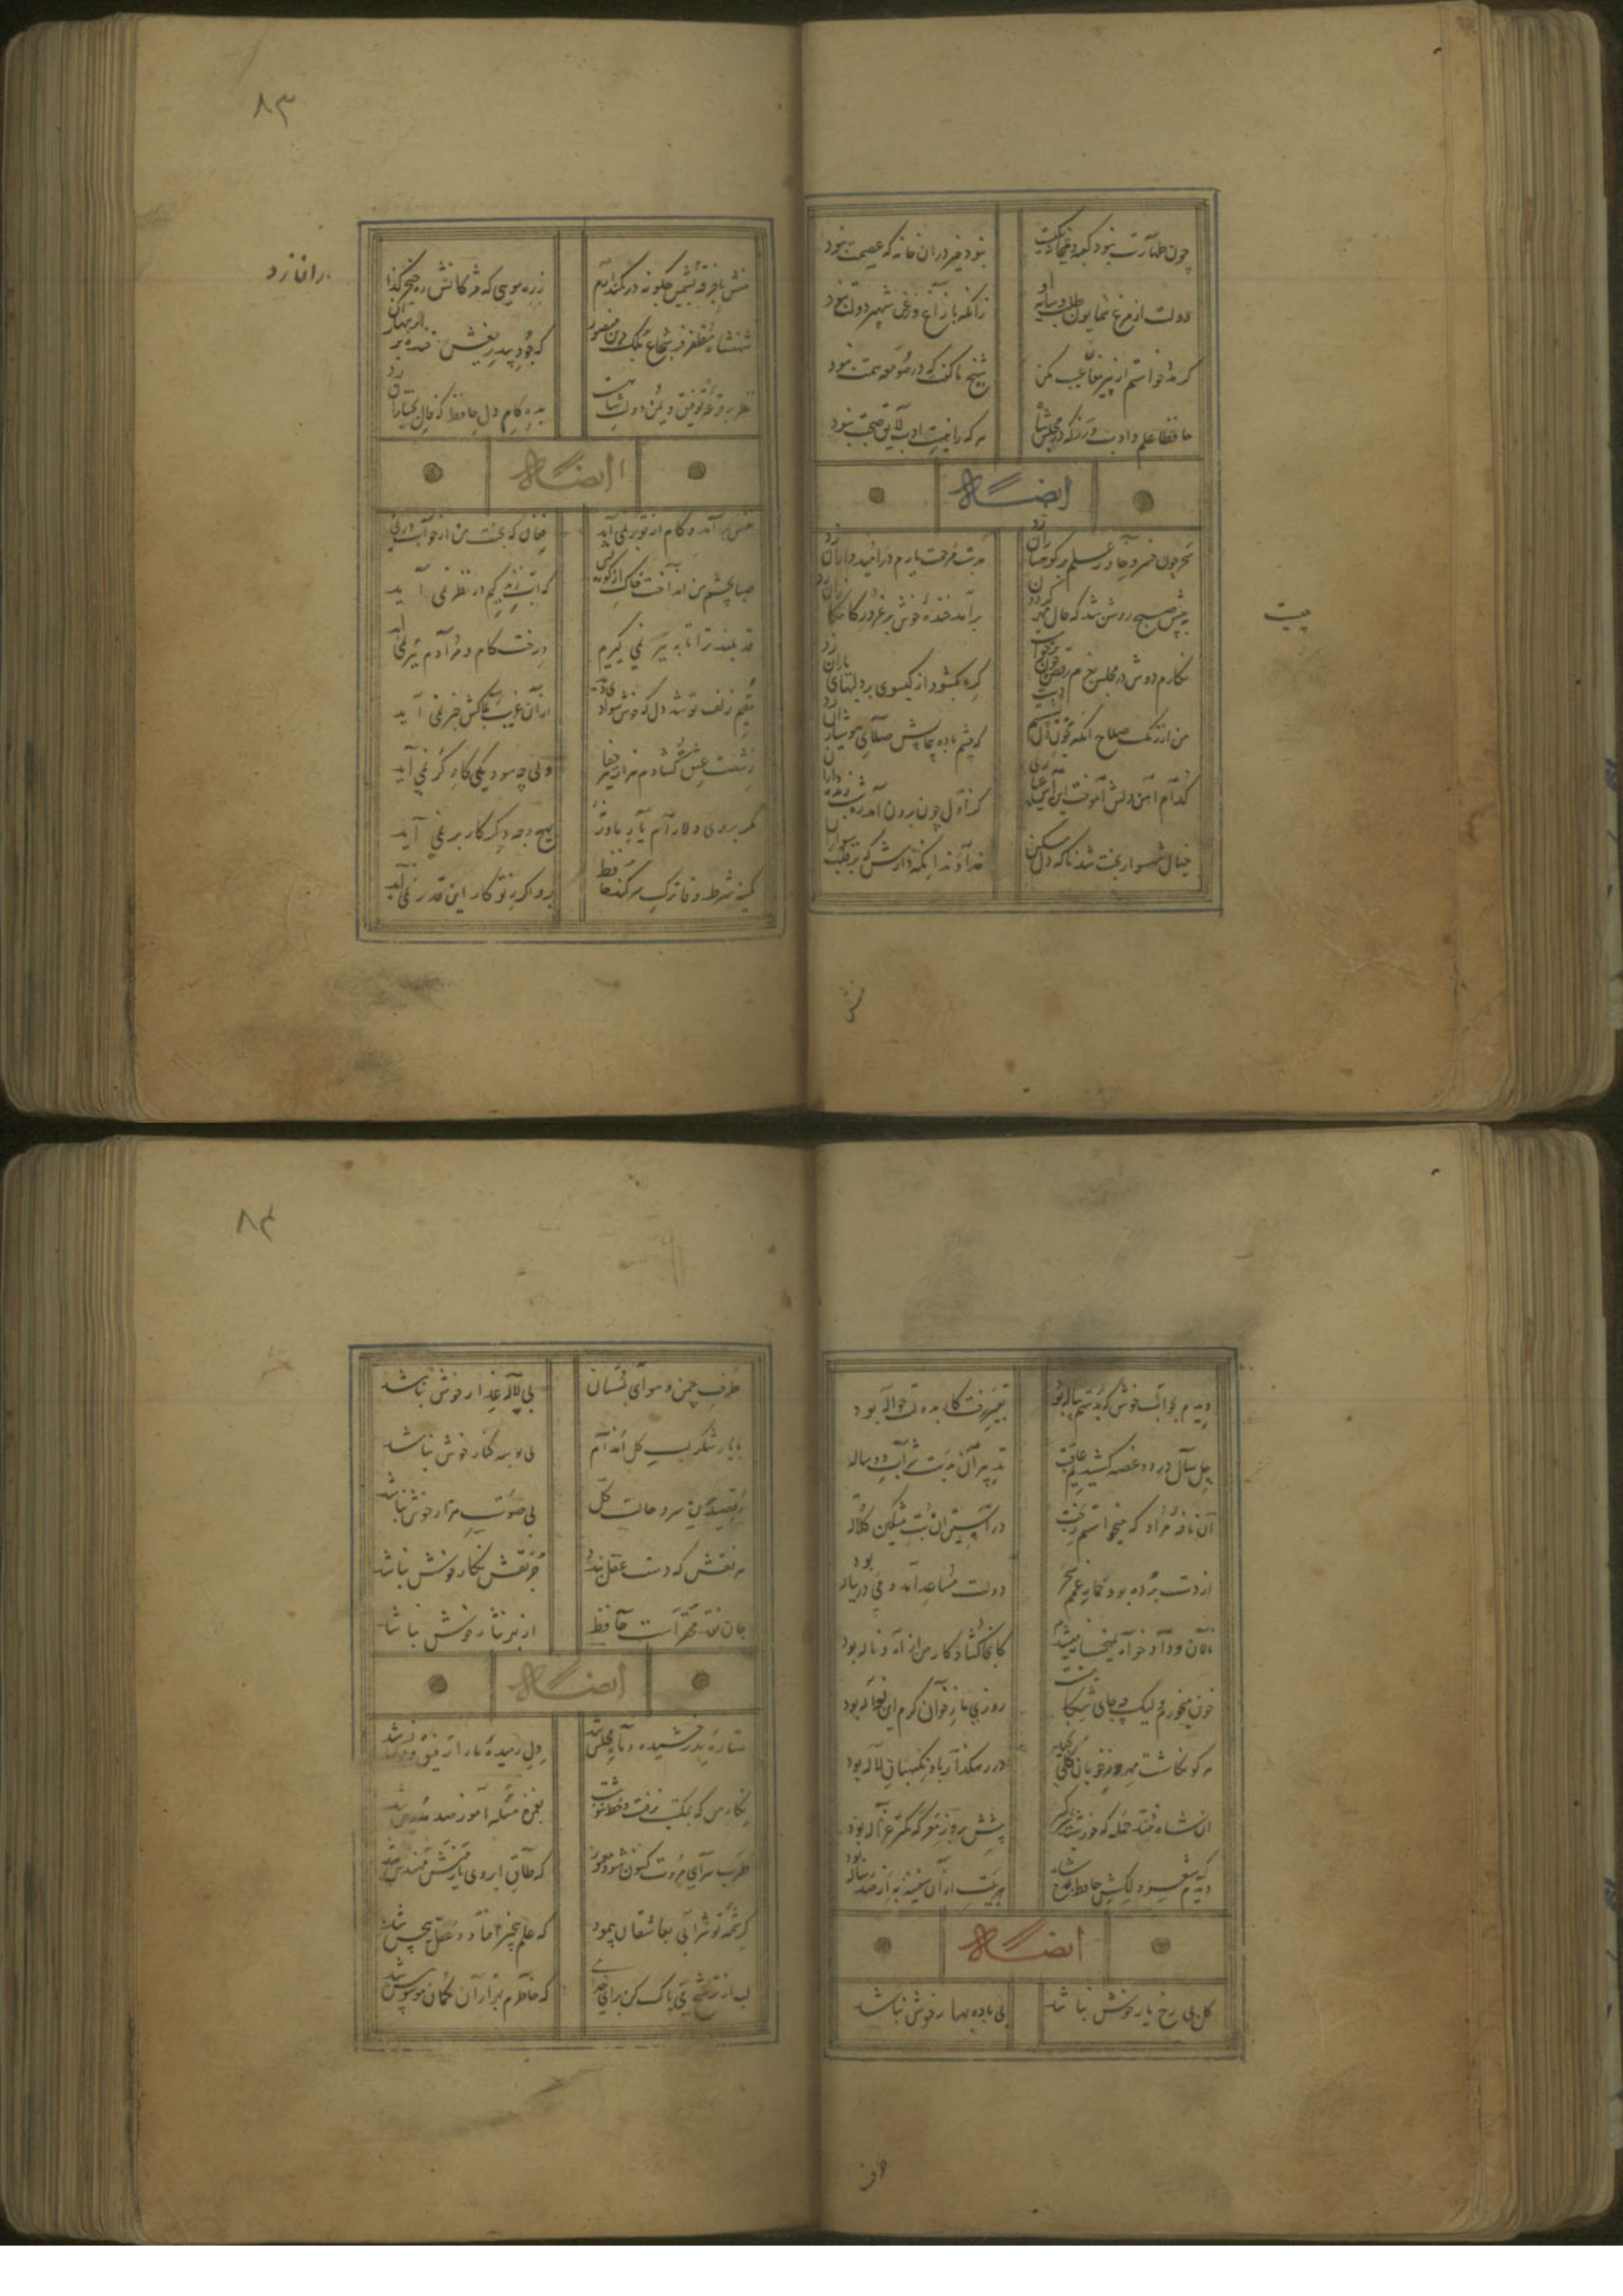 چون طهارت نبود کعبه و بتخانه یکیست
نبود خیر دران خانه که عصمت نبود
دولت از مرغ همایون طلب و سایه او
زانکه با زاغ و زغن شهپر دولت نبود
گر مدد خواستم از پیر مغان عیب مکن
شیخ ما گفت که در صومعه همت نبود
حافظا علم و ادب ورز که در مجلس شاه
هر که را نیست ادب لایق صحبت نبود
ایضاً له
سحر چون خسرو خاور علم بر کوهساران زد
بدست مرحمت یارم در امیدواران زد
به پیش صبح روشن شد که حال مهر گردون چیست
برآمد خنده خوش بر غرور کامکاران زد
نگارم دوش در مجلس بعزم رقص چون برخواست
گره بگشود از گیسوی بر دلهای یاران زد
من از رنگ صلاح آنگه بخون دل بشستم دست
که چشم باده پیمایش صلا بر هوشیاران زد
کدام آهن دلش آموخت این آیین عیاری
کز اول چون برون آمد ره شب زنده داران زد
خیال شهسواری پخت شد ناگه دل مسکین
خداوندا نگه دارش که بر قلب سواران زد
چیست
منش با خرقه پشمین کجا اندر کمند آرم
زره مویی که مژگانش ره خنجر گذاران زد
شهنشاه مظفر فر شجاع ملک و دین منصور
که جود بیدریغش خنده بر ابر بهاران زد
نظر بر قرعه توفیق و یمن دولت شاهست
بده کام دل حافظ که فال بختیاران زد
ایضاً له
نفس برآمد و کام از تو بر نمی آید
فغان که بخت من از خواب در نمی آید
صبا بچشم من انداخت خاکی از کویش
که آب زندگیم در نظر نمی آید
قد بلند ترا تا به بر نمی گیرم
درخت کام و مرادم ببر نمی آید
مقیم زلف تو شد دل که خوش سوادی دید
وزان غریب بلاکش خبر نمی آید
ز شست عشق گشادم هزار تیر دعا
ولی چه سود یکی کارگر نمی آید
مگر بروی دلارام یار ما ورنه
بهیچ وجه دگر کار بر نمی آید
کمینه شرط وفا ترک سر کند حافظ
برو اگر ز تو کار این قدر نمی آید
۸۳
ران زد
دیدم بخواب خوش که بدستم پیاله بود
تعبیر رفت کار بدولت حواله بود
چل سال درد و غصه کشیدیم عاقبت
تدبیر آن بدست شراب دو ساله بود
آن نافه مراد که میخواستم ز بخت
در چین زلف آن بت مشکین کلاله بود
از دست برده بود خمار غمم سحر
دولت مساعد آمد و می در پیاله بود
نالان و دادخواه بمیخانه میشدم
کانجا گشاد کار من از آه و ناله بود
خون میخورم ولیک چه جای شکایتست
روزی ما ز خوان کرم این نواله بود
هر کو نکاشت مهر و ز خوبان گلی نچید
در رهگذار باد نگهبان لاله بود
آن شاه تند حمله که خورشید شیرگیر
پیشش بروز معرکه کمتر غزاله بود
دیدیم شعر دلکش حافظ بمدح شاه
هر بیت ازان سفینه به از صد رساله بود
ایضاً له
گل بی رخ یار خوش نباشد
بی باده بهار خوش نباشد
طرف چمن و هوای بستان
بی لاله عذار خوش نباشد
با یار شکر لب گل اندام
بی بوسه کنار خوش نباشد
رقصیدن سرو حالت گل
بی صوت هزار خوش نباشد
هر نقش که دست عقل بندد
جز نقش نگار خوش نباشد
جان نقد محقر است حافظ
از بهر نثار خوش نباشد
ایضاً له
ستاره بدرخشید و ماه مجلس شد
دل رمیده ما را رفیق و مونس شد
نگار من که بمکتب نرفت و خط ننوشت
بغمزه مسئله آموز صد مدرس شد
طرب سرای محبت کنون شود معمور
که طاق ابروی یار منش مهندس شد
کرشمه تو شرابی بعاشقان پیمود
که علم بیخبر افتاد و عقل بیحس شد
لب از ترشح می پاک کن برای خدا
که خاطرم بهزاران گمان موسوس شد
۸۴